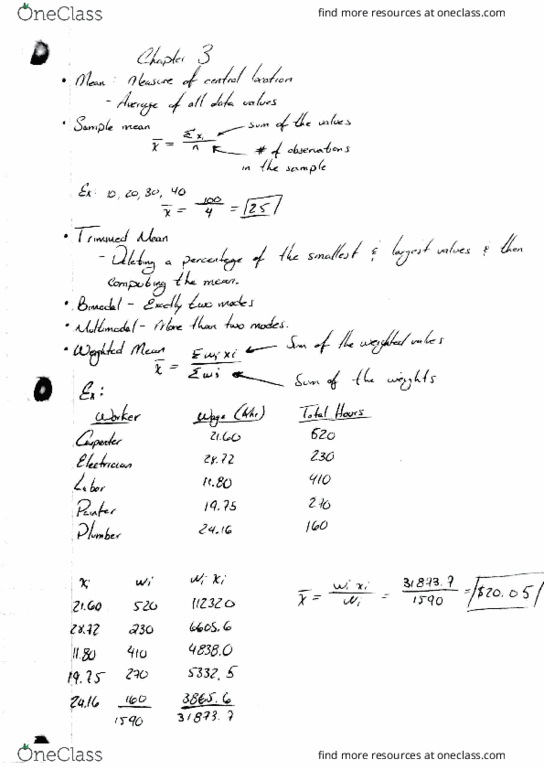 OneClass find more resources at oneclass.com
Chapter 3
• Mean: Measure of central location
- Average of all data values
• Sample mean
x̄ = Σxi / n
sum of the values
# of observations
in the sample
Ex: 10, 20, 30, 40
x̄ = 100/4 = 25
• Trimmed Mean
- Deleting a percentage of the smallest & largest values & then
computing the mean.
• Bimodal - Exactly two modes
• Multimodal - More than two modes.
• Weighted Mean x̄ = Σwi xi / Σwi
Sum of the weighted values
Sum of the weights
Ex:
Worker Wage ($/hr) Total Hours
Carpenter 21.60 520
Electrician 28.72 230
Labor 11.80 410
Painter 19.75 270
Plumber 24.16 160
xi wi wi xi
21.60 520 11232.0
28.72 230 6605.6
11.80 410 4838.0
19.75 270 5332.5
24.16 160 3865.6
1590 31873.7
x̄ = wi xi / wi = 31873.7 / 1590 = $20.05
OneClass find more resources at oneclass.com